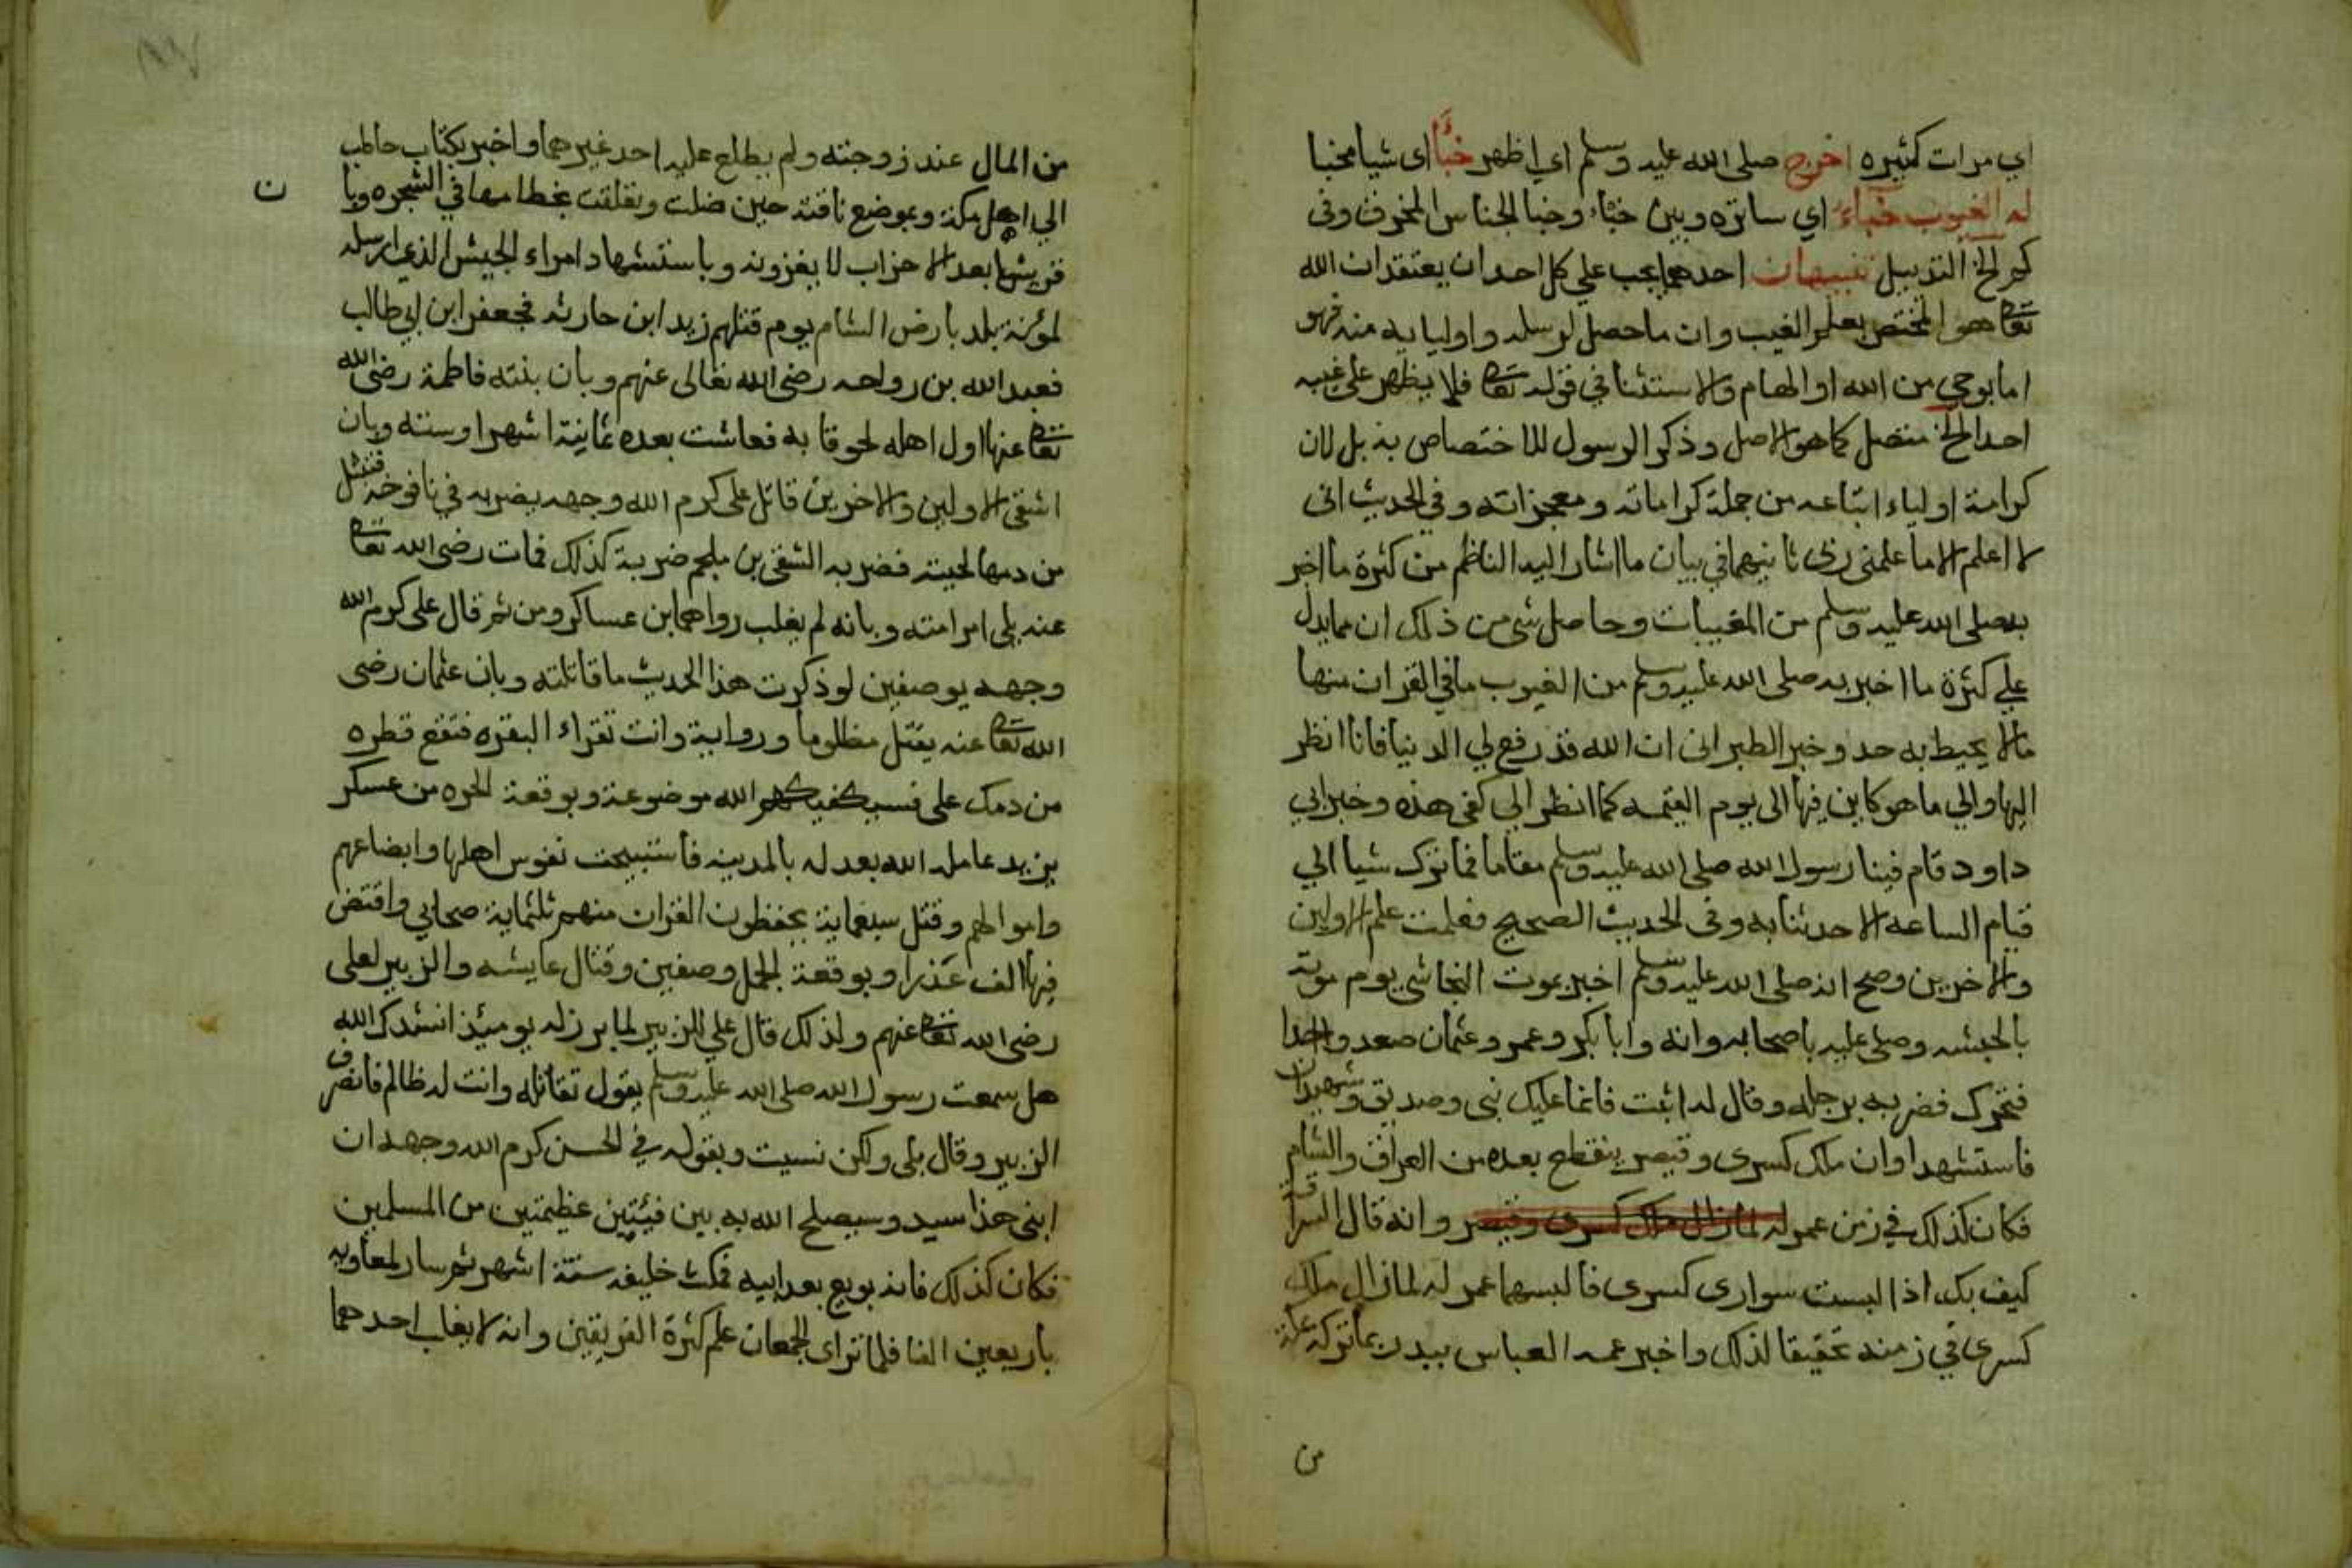 اي مرات كثيره اخرج صلى الله عليه وسلم اي اظهر خبأ اى شيا مخبا
له الغيوب خباء اي ساتره وبين خباء وخبا الجناس المحرف وفى
كم الخ التذييل تنبيهان احدهما يجب علي كل احد ان يعتقد ان الله
تعا هو المختص بعلم الغيب وان ما حصل لرسله واوليا يه منه فهو
اما بوحي من الله او الهام والاستثنا في قوله تعا فلا يظهر على غيبه
احدا الخ متصل كما هو الاصل وذكر الرسول للاختصاص به بل لان
كرامة اولياء اتباعه من جملة كراماته ومعجزاته وفي الحديث انى
لا اعلم الا ما علمنى ربى ثانيهما في بيان ما اشار اليه الناظم من كثرة ما اخبر
به صلى الله عليه وسلم من المغيبات وحاصل شى من ذلك ان مما يدل
علي كثرة ما اخبر به صلى الله عليه وسلم من الغيوب ما في القران منها
مالا يحيط به حد وخبر الطبرانى ان الله قد رفع لي الدنيا فانا انظر
اليها والي ما هو كاين فيها الى يوم القيمه كما انظر الي كفى هذه وخبر ابي
داود قام فينا رسول الله صلى الله عليه وسلم مقاما فما ترك شيا الي
قيام الساعه الا حدثنا به وفى الحديث الصحيح فعلمت علم الاولين
والاخرين وصح انه صلى الله عليه وسلم اخبر بموت النجاشى يوم موته
بالحبشه وصلى عليه باصحابه وانه وابا بكر وعمر وعثمان صعدوا احدا
فتحرك فضربه برجله وقال له اثبت فانما عليك نبى وصديق وشهيدان
فاستشهدا وان ملك كسرى وقيصر ينقطع بعده من العراق والشام
فكان كذلك في زمن عمر له لما زال ملك كسرى وقيصر وانه قال لسراقة
كيف بك اذا لبست سوارى كسرى فالبسهما عمر له لما زال ملك
كسرى في زمنه تحقيقا لذلك واخبر عمه العباس ببدر بما تركه بمكة
من
من المال عند زوجته ولم يطلع عليه احد غيرهما واخبر بكتاب حاطب
الي اهل مكة وبموضع ناقته حين ضلت وتعلقت بخطامها في الشجره وبا
ن
قريشا بعد الاحزاب لا يغزونه وباستشهاد امراء الجيش الذي ارسله
لموتة بلد بارض الشام يوم قتلهم زيد ابن حارثه فجعفر ابن ابي طالب
فعبد الله بن رواحه رضى الله تعالى عنهم وبان بنته فاطمة رضى الله
تعا عنها اول اهله لحوقا به فعاشت بعده ثمانية اشهر او ستة وبان
اشقى الاولين والاخرين قاتل على كرم الله وجهه يضربه في نافوخه فتبتل
من دمها لحيته فضربه الشقى بن ملجم ضربة كذلك فمات رضى الله تعا
عنه بلى امر امته وبانه لم يغلب رواهما ابن عساكر ومن ثم قال على كرم الله
وجهه يوم صفين لو ذكرت هذا الحديث ما قاتلته وبان عثمان رضى
الله تعا عنه يقتل مظلوما ورواية وانت تقراء البقره فتقع قطره
من دمك على فسيكفيكهم الله موضوعة وبوقعة الحره من عسكر
يزيد عامله الله بعدله بالمدينه فاستبيحت نفوس اهلها وابضاعهم
واموالهم وقتل سبعماية يحفظون القران منهم ثلثماية صحابي وافتض
فيها الف عذرا وبوقعة الجمل وصفين وقتال عايشه والزبير لعلى
رضى الله تعا عنهم ولذلك قال علي للزبير لما برز له يوميئذ انشدك الله
هل سمعت رسول الله صلى الله عليه وسلم يقول تقاتله وانت له ظالم فانصرف
الزبير وقال بلى ولكن نسيت وبقوله في الحسن كرم الله وجهه ان
ابنى هذا سيد وسيصلح الله به بين فيئتين عظيمتين من المسلمين
فكان كذلك فانه بويع بعد ابيه فمكث خليفه ستة اشهر ثم سار لمعاويه
باربعين الفا فلما تراى الجمعان علم كثرة الفريقين وانه لا يغلب احدهما